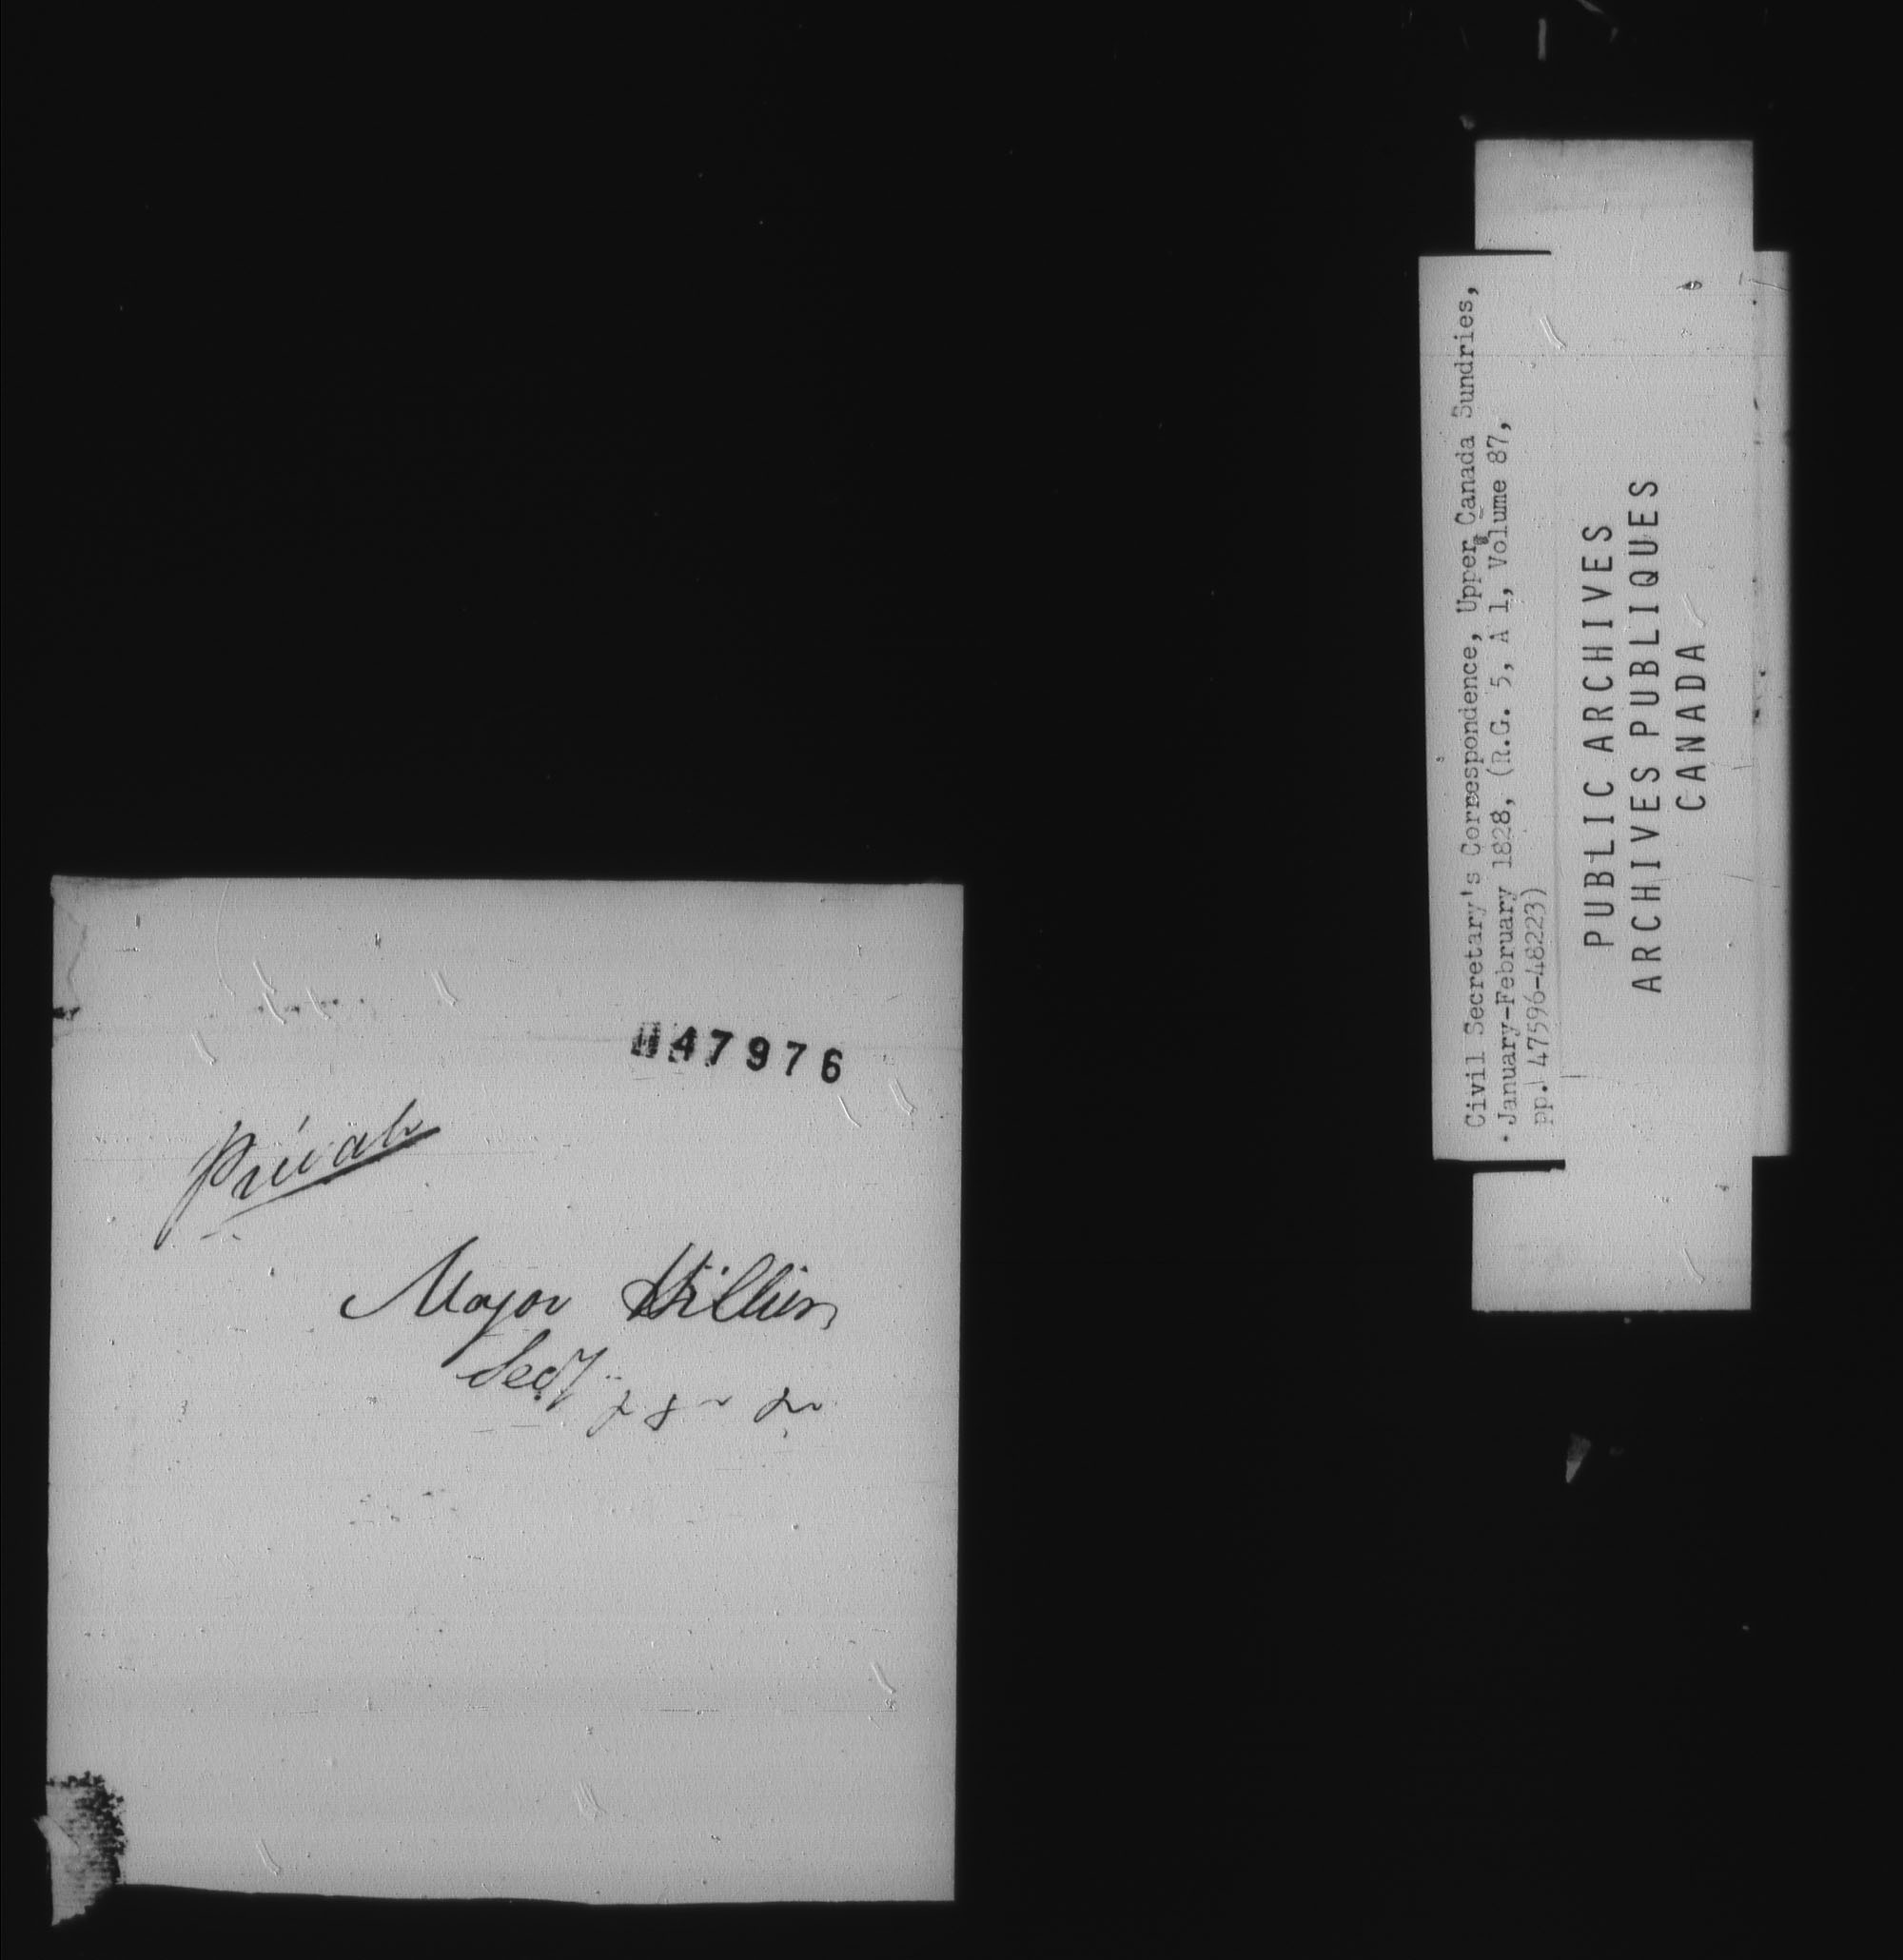 47976
Private
Major Hillier
Secy
Civil Secretary's Correspondence, Upper Canada Sundries,
January-February 1828, (R.G. 5, A 1, Volume 87,
pp. 47596-48223)
PUBLIC ARCHIVES
ARCHIVES PUBLIQUES
CANADA